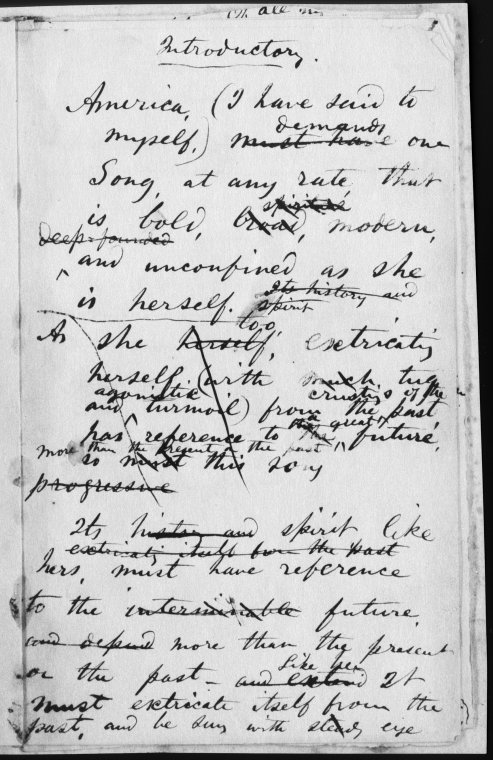 all
Introductory.
America, (I have said to
demands
myself,) must have one
Song, at any rate, that
spirited
is bold, broad, modern,
deep-founded
and unconfined as she
is herself. Its history and
spirit
too,
As she herself, extricating
herself (with much tug
agonistic crusting of the
and turmoil) from the past
the great
has reference to the future,
more than the present or the past
so must this song
progressive
Its history and spirit like
extricating itself from the past
hers, must have reference
to the interminable future
and depend more than the present
or the past — and extend It
Like her
must extricate itself from the
past, and be sung with steady eye